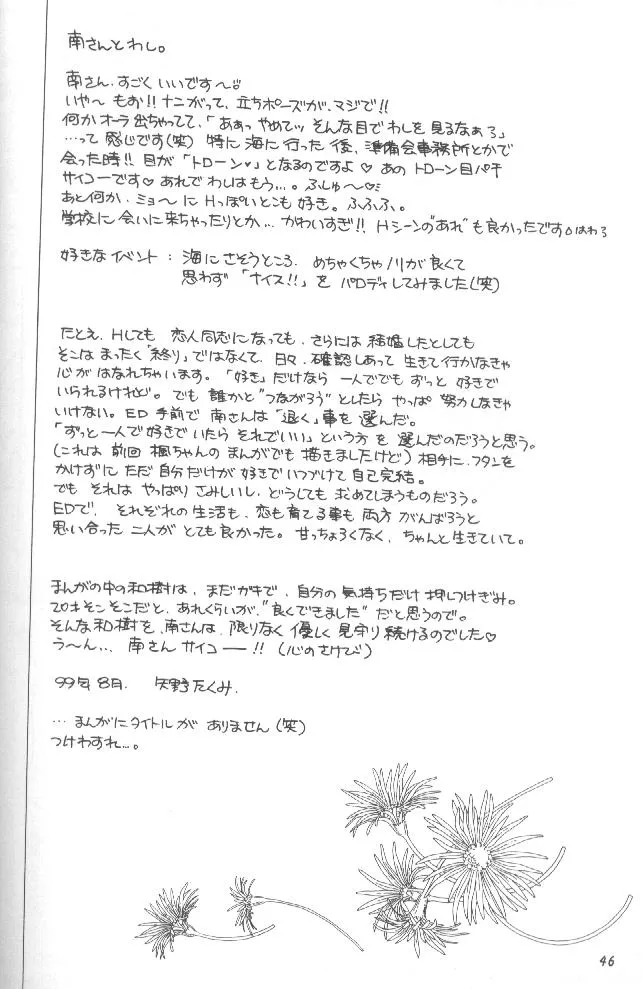 南さんとわし。
南さん、すごくいいです〜
いや〜 もお!! ナニがって、立ちポーズが、マジで!!
何かオーラ出ちゃってて、「ああっ やめてッ そんな目でわしを見るなぁる」
…って感じです(笑) 特に海に行った後、準備会事務所とかで
会った時!! 目が「トローン♥」となるのですよ♡ あのトローン目パチ
サイコーです♡ あれでわしはもう…。ふしゅ〜
あと何か、ミョーにHっぽいとこも好き。ふふふ。
学校に会いに来ちゃったりとか…かわいすぎ!! Hシーンの"あれ"も良かったです
好きなイベント: 海にさそうところ。めちゃくちゃノリが良くて
思わず「ナイス!!」を パロディしてみました(笑)
たとえ、Hしても 恋人同志になっても、さらには 結婚したとしても
そこは まったく「終り」ではなくて、日々、確認しあって 生きて行かなきゃ
心がはなれちゃいます。「好き」だけなら 一人ででも ずっと 好きで
いられるけれど。でも 誰かと"つながろう"としたら やっぱ 努力しなきゃ
いけない。ED手前で 南さんは「退く」事を 選んだ。
「ずっと一人で好きでいたら それでいい」という方を 選んだのだろうと思う。
(これは 前回 楓ちゃんの まんがでも 描きましたけど) 相手に、フタンを
かけずに ただ 自分だけが 好きでいつづけて 自己完結。
でも それは やっぱり さみしいし、どうしても 求めてしまうものだろう。
EDで、それぞれの生活も、恋も育てる事も 両方 がんばろうと
思い合った 二人が とても良かった。甘っちょろくなく、ちゃんと生きていて。
まんがの中の和樹は、まだガキで、自分の 気持ちだけ 押しつけぎみ。
20才そこそこだと、あれくらいが、"良くできました"だと思うので。
そんな和樹を、南さんは、限りなく 優しく 見守り続けるのでした♡
う〜ん… 南さん サイコー―!! (心のさけび)
99年8月。 矢野たくみ.
… まんがにタイトルが ありません(笑)
つけわすれ…。
46